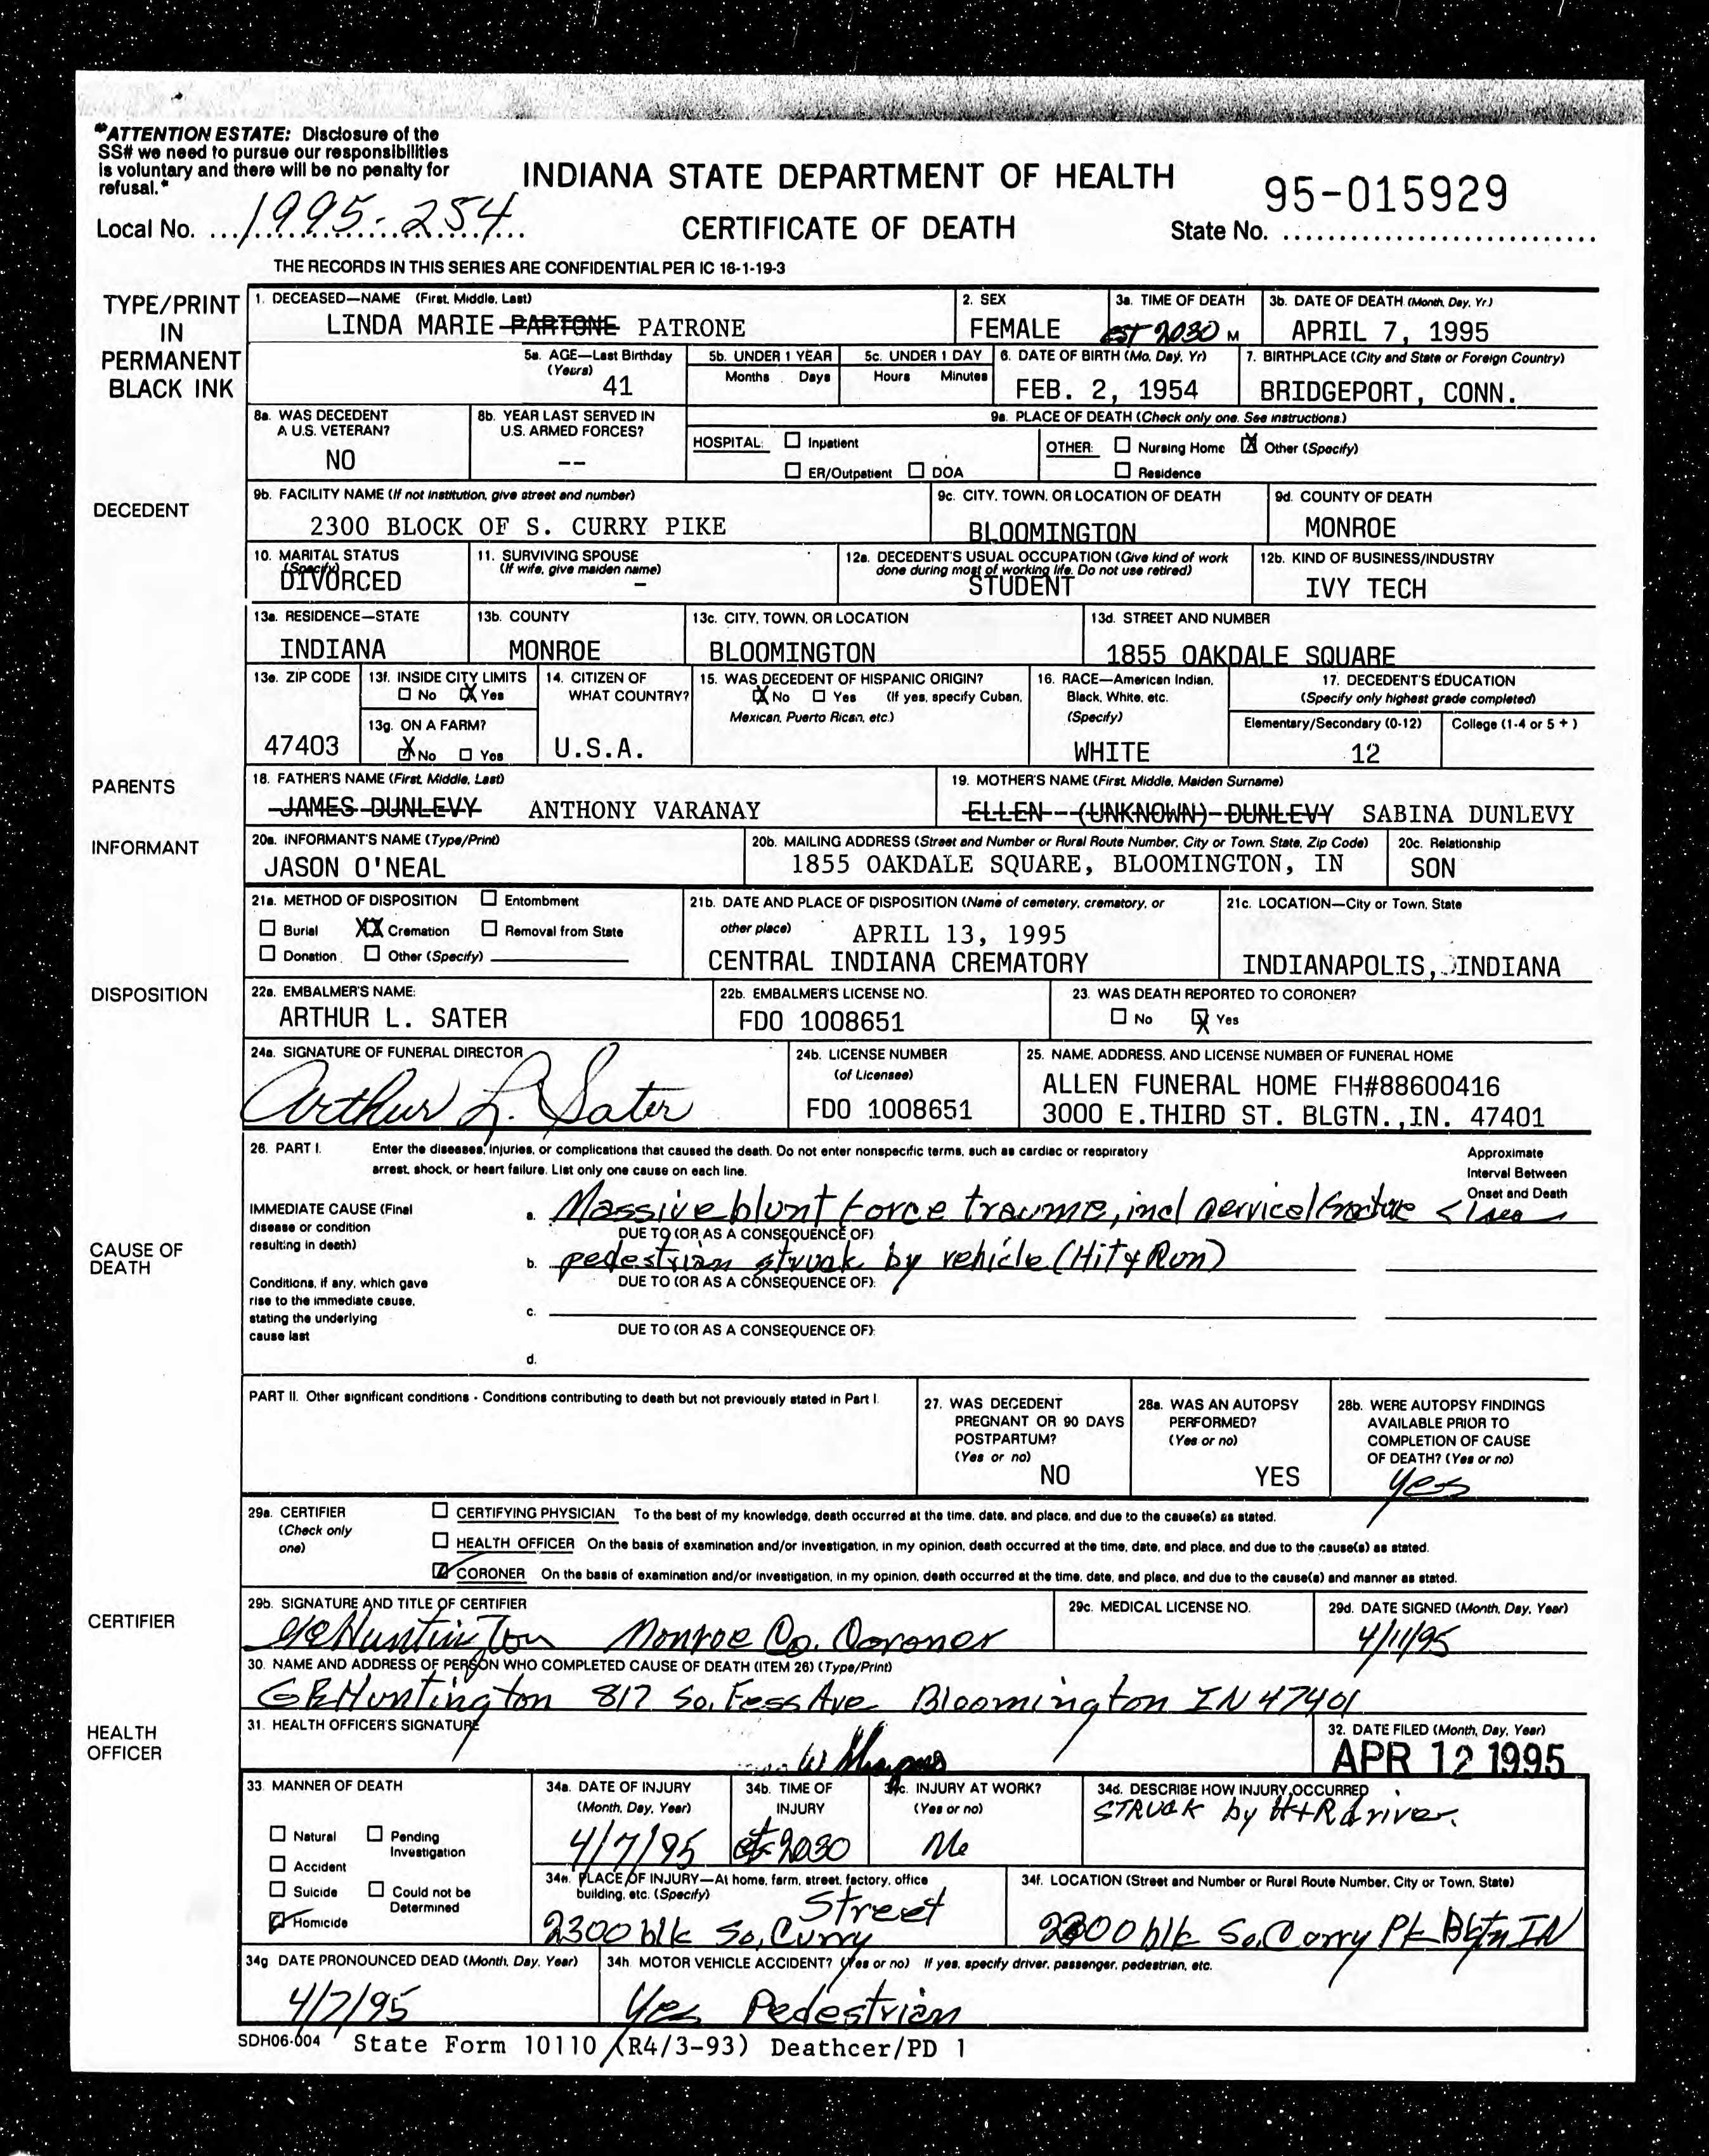 "ATTENTION ESTATE: Disclosure of the
SS# we need to pursue our responsibilities
is voluntary and there will be no penalty for
refusal."
INDIANA STATE DEPARTMENT OF HEALTH
95-015929
Local No. 1995-254
CERTIFICATE OF DEATH
State No.
THE RECORDS IN THIS SERIES ARE CONFIDENTIAL PER IC 16-1-19-3
TYPE/PRINT
IN
PERMANENT
BLACK INK
1. DECEASED—NAME (First, Middle, Last)
LINDA MARIE PARTONE PATRONE
2. SEX
FEMALE
3a. TIME OF DEATH
EST 2030 M
3b. DATE OF DEATH (Month, Day, Yr.)
APRIL 7, 1995
5a. AGE—Last Birthday
(Years)
41
5b. UNDER 1 YEAR
Months Days
5c. UNDER 1 DAY
Hours Minutes
6. DATE OF BIRTH (Mo, Day, Yr)
FEB. 2, 1954
7. BIRTHPLACE (City and State or Foreign Country)
BRIDGEPORT, CONN.
8a. WAS DECEDENT
A U.S. VETERAN?
NO
8b. YEAR LAST SERVED IN
U.S. ARMED FORCES?
--
9a. PLACE OF DEATH (Check only one. See instructions.)
HOSPITAL: Inpatient
ER/Outpatient DOA
OTHER: Nursing Home X Other (Specify)
Residence
DECEDENT
9b. FACILITY NAME (If not institution, give street and number)
2300 BLOCK OF S. CURRY PIKE
9c. CITY, TOWN, OR LOCATION OF DEATH
BLOOMINGTON
9d. COUNTY OF DEATH
MONROE
10. MARITAL STATUS
(Specify)
DIVORCED
11. SURVIVING SPOUSE
(If wife, give maiden name)
-
12a. DECEDENT'S USUAL OCCUPATION (Give kind of work
done during most of working life. Do not use retired)
STUDENT
12b. KIND OF BUSINESS/INDUSTRY
IVY TECH
13a. RESIDENCE—STATE
INDIANA
13b. COUNTY
MONROE
13c. CITY, TOWN, OR LOCATION
BLOOMINGTON
13d. STREET AND NUMBER
1855 OAKDALE SQUARE
13e. ZIP CODE
47403
13f. INSIDE CITY LIMITS
No X Yes
13g. ON A FARM?
X No Yes
14. CITIZEN OF
WHAT COUNTRY?
U.S.A.
15. WAS DECEDENT OF HISPANIC ORIGIN?
X No Yes (If yes, specify Cuban,
Mexican, Puerto Rican, etc.)
16. RACE—American Indian,
Black, White, etc.
(Specify)
WHITE
17. DECEDENT'S EDUCATION
(Specify only highest grade completed)
Elementary/Secondary (0-12)
12
College (1-4 or 5 + )
PARENTS
18. FATHER'S NAME (First, Middle, Last)
JAMES DUNLEVY ANTHONY VARANAY
19. MOTHER'S NAME (First, Middle, Maiden Surname)
ELLEN (UNKNOWN) DUNLEVY SABINA DUNLEVY
INFORMANT
20a. INFORMANT'S NAME (Type/Print)
JASON O'NEAL
20b. MAILING ADDRESS (Street and Number or Rural Route Number, City or Town, State, Zip Code)
1855 OAKDALE SQUARE, BLOOMINGTON, IN
20c. Relationship
SON
DISPOSITION
21a. METHOD OF DISPOSITION Entombment
Burial XX Cremation Removal from State
Donation Other (Specify)
21b. DATE AND PLACE OF DISPOSITION (Name of cemetery, crematory, or
other place)
APRIL 13, 1995
CENTRAL INDIANA CREMATORY
21c. LOCATION—City or Town, State
INDIANAPOLIS, INDIANA
22a. EMBALMER'S NAME:
ARTHUR L. SATER
22b. EMBALMER'S LICENSE NO.
FDO 1008651
23. WAS DEATH REPORTED TO CORONER?
No X Yes
24a. SIGNATURE OF FUNERAL DIRECTOR
Arthur L. Sater
24b. LICENSE NUMBER
(of Licensee)
FDO 1008651
25. NAME, ADDRESS, AND LICENSE NUMBER OF FUNERAL HOME
ALLEN FUNERAL HOME FH#88600416
3000 E.THIRD ST. BLGTN.,IN. 47401
CAUSE OF
DEATH
26. PART I. Enter the diseases, injuries, or complications that caused the death. Do not enter nonspecific terms, such as cardiac or respiratory
arrest, shock, or heart failure. List only one cause on each line.
Approximate
Interval Between
Onset and Death
IMMEDIATE CAUSE (Final
disease or condition
resulting in death)
a. Massive blunt force trauma, incl cervical fracture <1 sec
DUE TO (OR AS A CONSEQUENCE OF)
b. pedestrian struck by vehicle (Hit & Run)
DUE TO (OR AS A CONSEQUENCE OF):
Conditions, if any, which gave
rise to the immediate cause,
stating the underlying
cause last
c.
DUE TO (OR AS A CONSEQUENCE OF):
d.
PART II. Other significant conditions - Conditions contributing to death but not previously stated in Part I.
27. WAS DECEDENT
PREGNANT OR 90 DAYS
POSTPARTUM?
(Yes or no)
NO
28a. WAS AN AUTOPSY
PERFORMED?
(Yes or no)
YES
28b. WERE AUTOPSY FINDINGS
AVAILABLE PRIOR TO
COMPLETION OF CAUSE
OF DEATH? (Yes or no)
yes
CERTIFIER
29a. CERTIFIER
(Check only
one)
CERTIFYING PHYSICIAN To the best of my knowledge, death occurred at the time, date, and place, and due to the cause(s) as stated.
HEALTH OFFICER On the basis of examination and/or investigation, in my opinion, death occurred at the time, date, and place, and due to the cause(s) as stated.
CORONER On the basis of examination and/or investigation, in my opinion, death occurred at the time, date, and place, and due to the cause(s) and manner as stated.
29b. SIGNATURE AND TITLE OF CERTIFIER
Huntington Monroe Co. Coroner
29c. MEDICAL LICENSE NO.
29d. DATE SIGNED (Month, Day, Year)
4/11/95
30. NAME AND ADDRESS OF PERSON WHO COMPLETED CAUSE OF DEATH (ITEM 26) (Type/Print)
GE Huntington 817 So. Fess Ave Bloomington IN 47401
HEALTH
OFFICER
31. HEALTH OFFICER'S SIGNATURE
32. DATE FILED (Month, Day, Year)
APR 12 1995
33. MANNER OF DEATH
Natural Pending
Investigation
Accident
Suicide Could not be
Determined
Homicide
34a. DATE OF INJURY
(Month, Day, Year)
4/7/95
34b. TIME OF
INJURY
est 2030
34c. INJURY AT WORK?
(Yes or no)
No
34d. DESCRIBE HOW INJURY OCCURRED
STRUCK by H+R driver.
34e. PLACE OF INJURY—At home, farm, street, factory, office
building, etc. (Specify)
Street
2300 blk So. Curry
34f. LOCATION (Street and Number or Rural Route Number, City or Town, State)
2300 blk So. Curry Pk Blgtn IN
34g DATE PRONOUNCED DEAD (Month, Day, Year)
4/7/95
34h. MOTOR VEHICLE ACCIDENT? (Yes or no) If yes, specify driver, passenger, pedestrian, etc.
Yes Pedestrian
SDH06-004 State Form 10110 (R4/3-93) Deathcer/PD 1